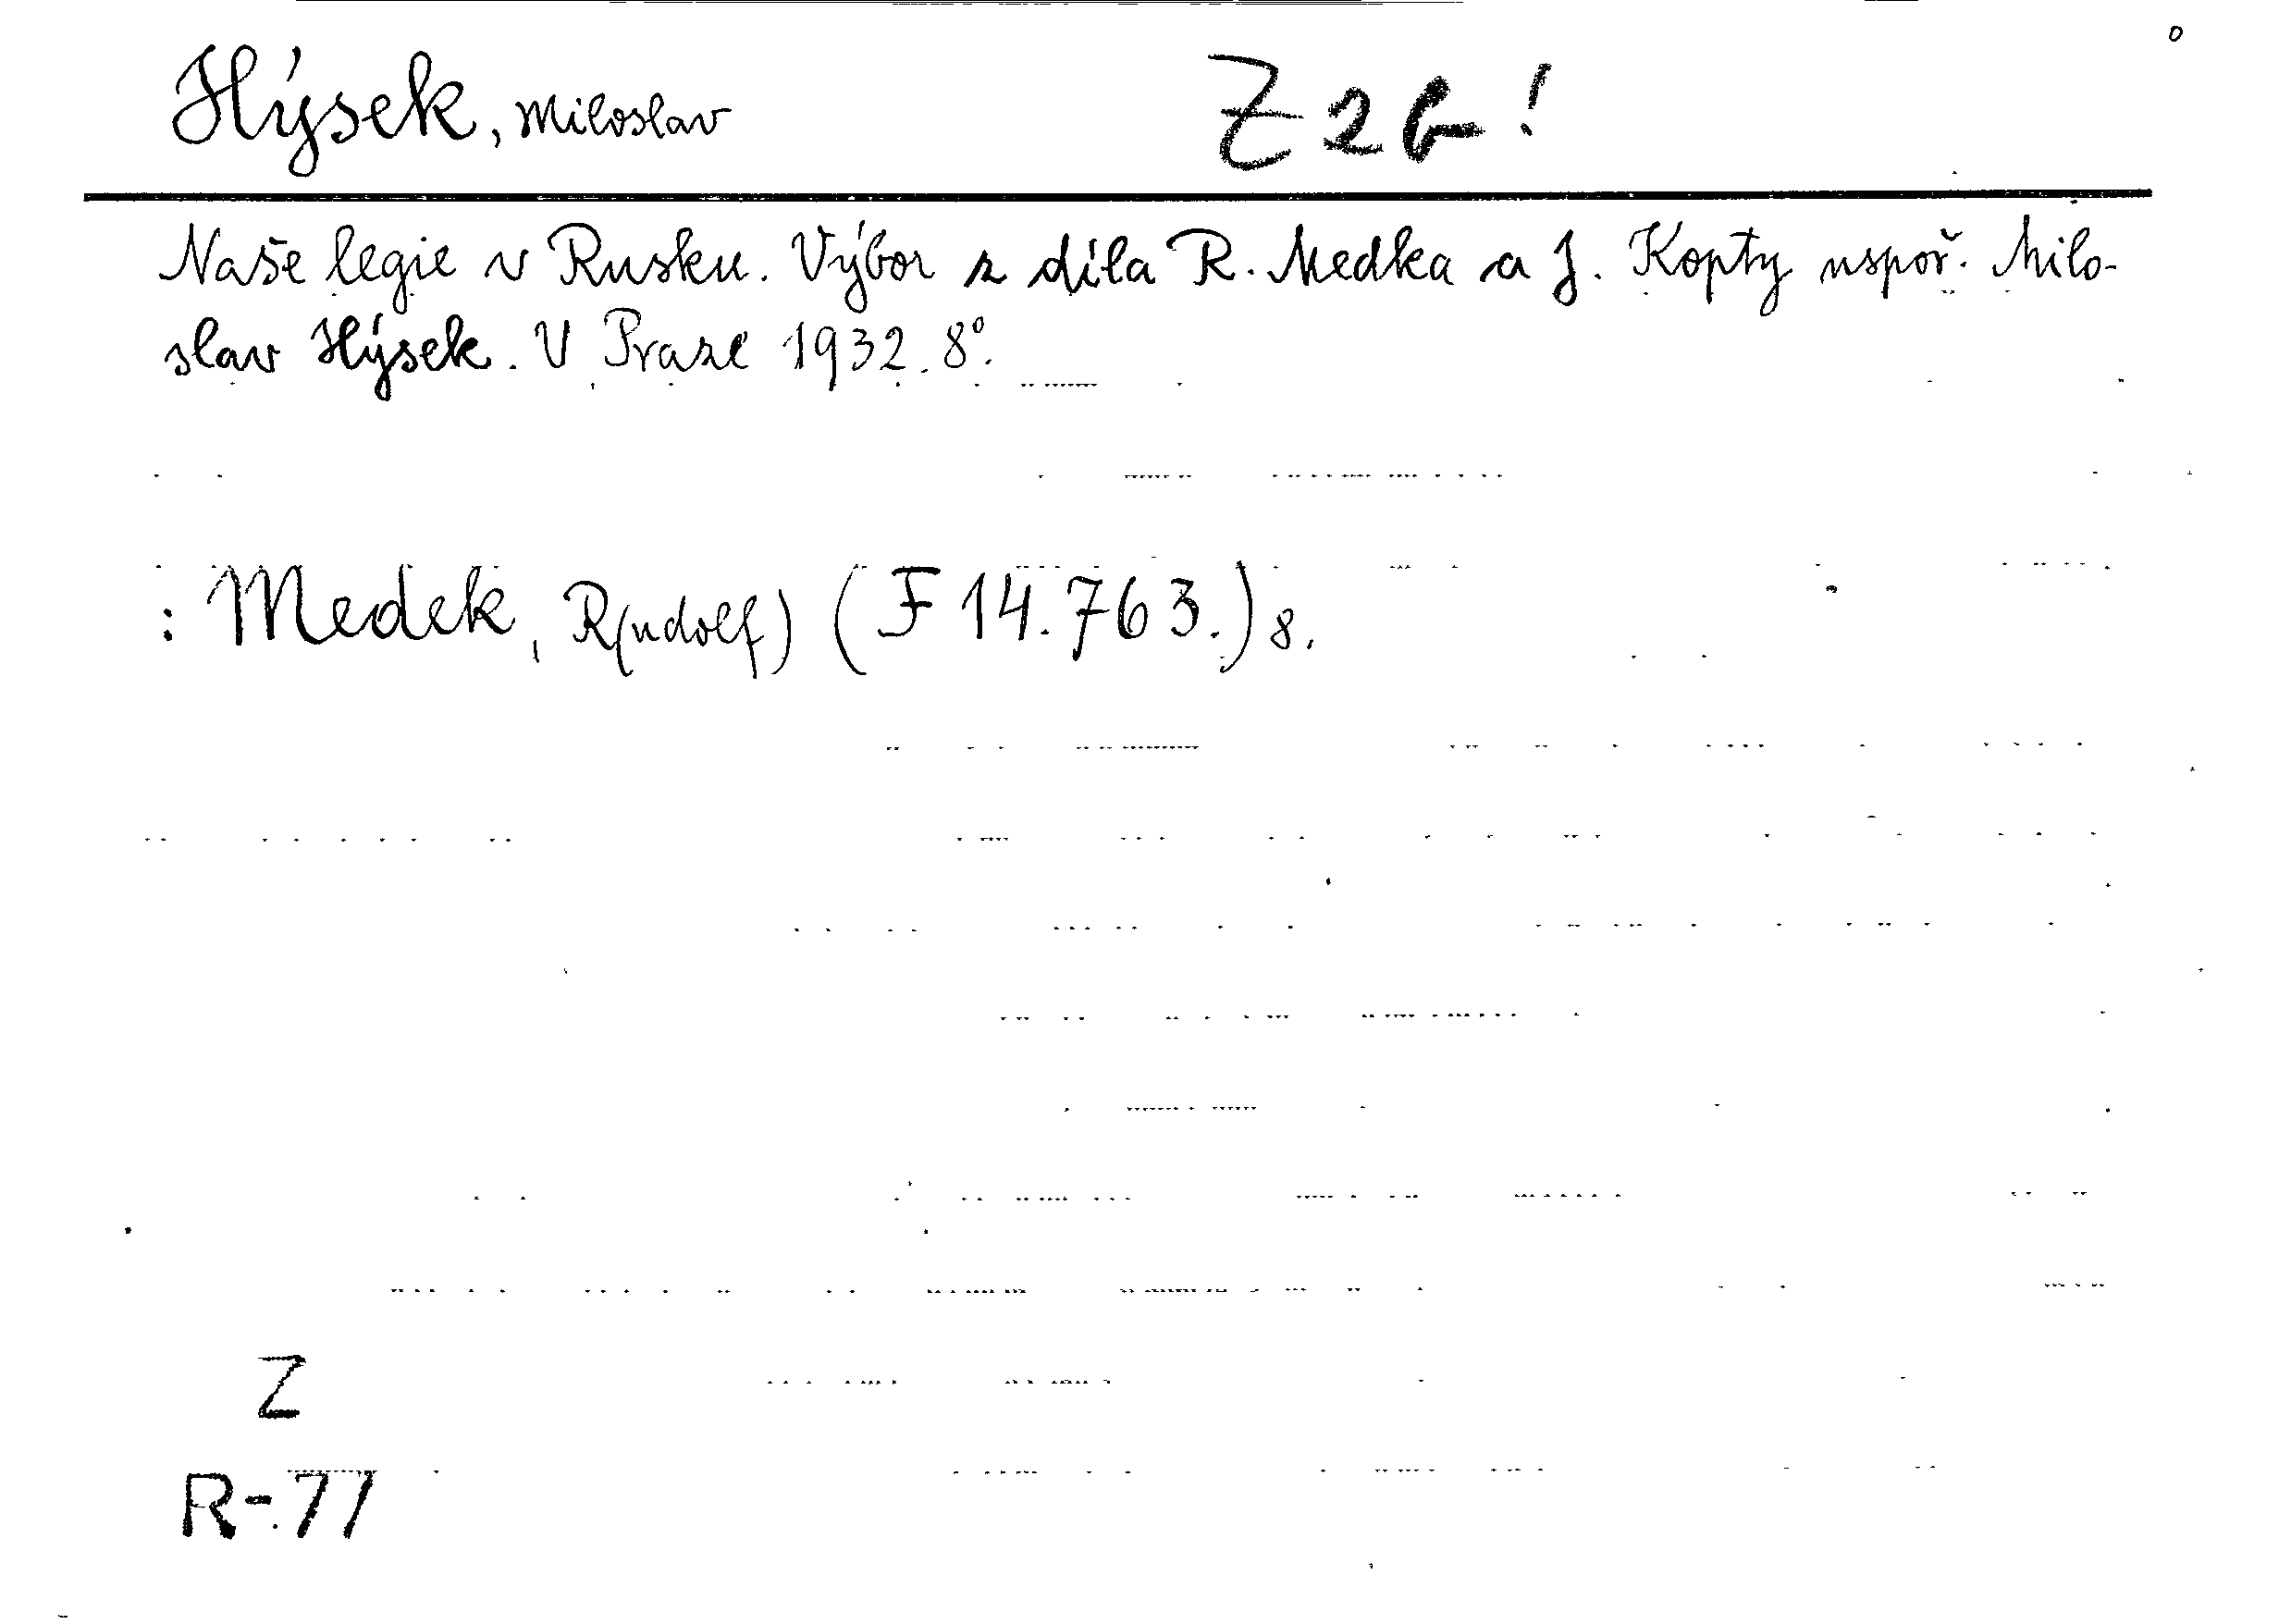 Hýsek, Miloslav Z 2 b !
Naše legie v Rusku. Výbor z díla R. Medka a J. Kopty uspoř. Milo-
slav Hýsek. V Praze 1932. 8°.
: Medek, R(udolf) (F 14.763.) 8.
Z
R-77